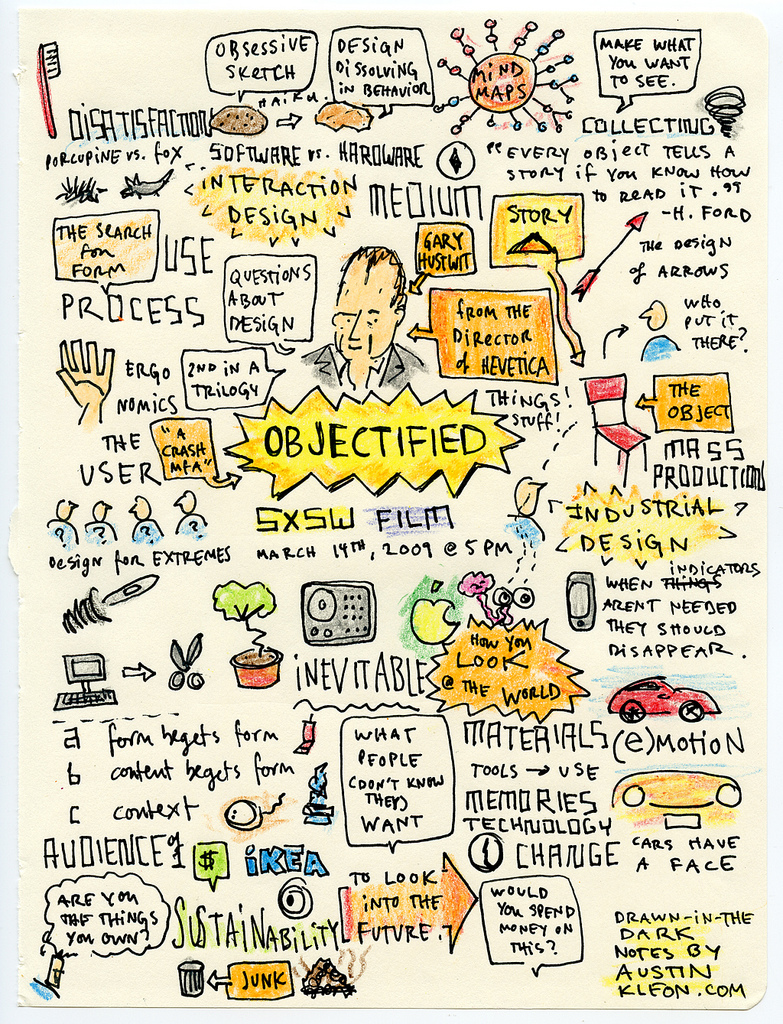 OBSESSIVE
SKETCH
DESIGN
DISSOLVING
IN BEHAVIOR
MIND
MAPS
MAKE WHAT
YOU WANT
TO SEE.
HAIKU.
DISATISFACTION
COLLECTING
PORCUPINE VS. FOX
SOFTWARE vs. HARDWARE
"EVERY OBJECT TELLS A
STORY IF YOU KNOW HOW
TO READ IT."
-H. FORD
INTERACTION
DESIGN
MEDIUM
STORY
THE SEARCH
FOR
FORM
USE
GARY
HUSTWIT
THE DESIGN
OF ARROWS
PROCESS
QUESTIONS
ABOUT
DESIGN
FROM THE
DIRECTOR
OF HEVETICA
WHO
PUT IT
THERE?
ERGO
NOMICS
2ND IN A
TRILOGY
THINGS!
STUFF!
THE
OBJECT
THE
USER
"A
CRASH
MFA"
OBJECTIFIED
MASS
PRODUCTION
SXSW FILM
MARCH 14TH, 2009 @ 5 PM
INDUSTRIAL
DESIGN
? ? ? ?
DESIGN FOR EXTREMES
INDICATORS
WHEN THINGS
ARENT NEEDED
THEY SHOULD
DISAPPEAR.
INEVITABLE
HOW YOU
LOOK
@ THE WORLD
a form begets form
b content begets form
c context
WHAT
PEOPLE
(DON'T KNOW
THEY)
WANT
MATERIALS
(e)MOTION
TOOLS → USE
MEMORIES
TECHNOLOGY
CHANGE
CARS HAVE
A FACE
AUDIENCE OF 1
$
IKEA
ARE YOU
THE THINGS
YOU OWN?
SUSTAINABILITY
TO LOOK
INTO THE
FUTURE.
WOULD
YOU SPEND
MONEY ON
THIS?
JUNK
DRAWN-IN-THE
DARK
NOTES BY
AUSTIN
KLEON.COM